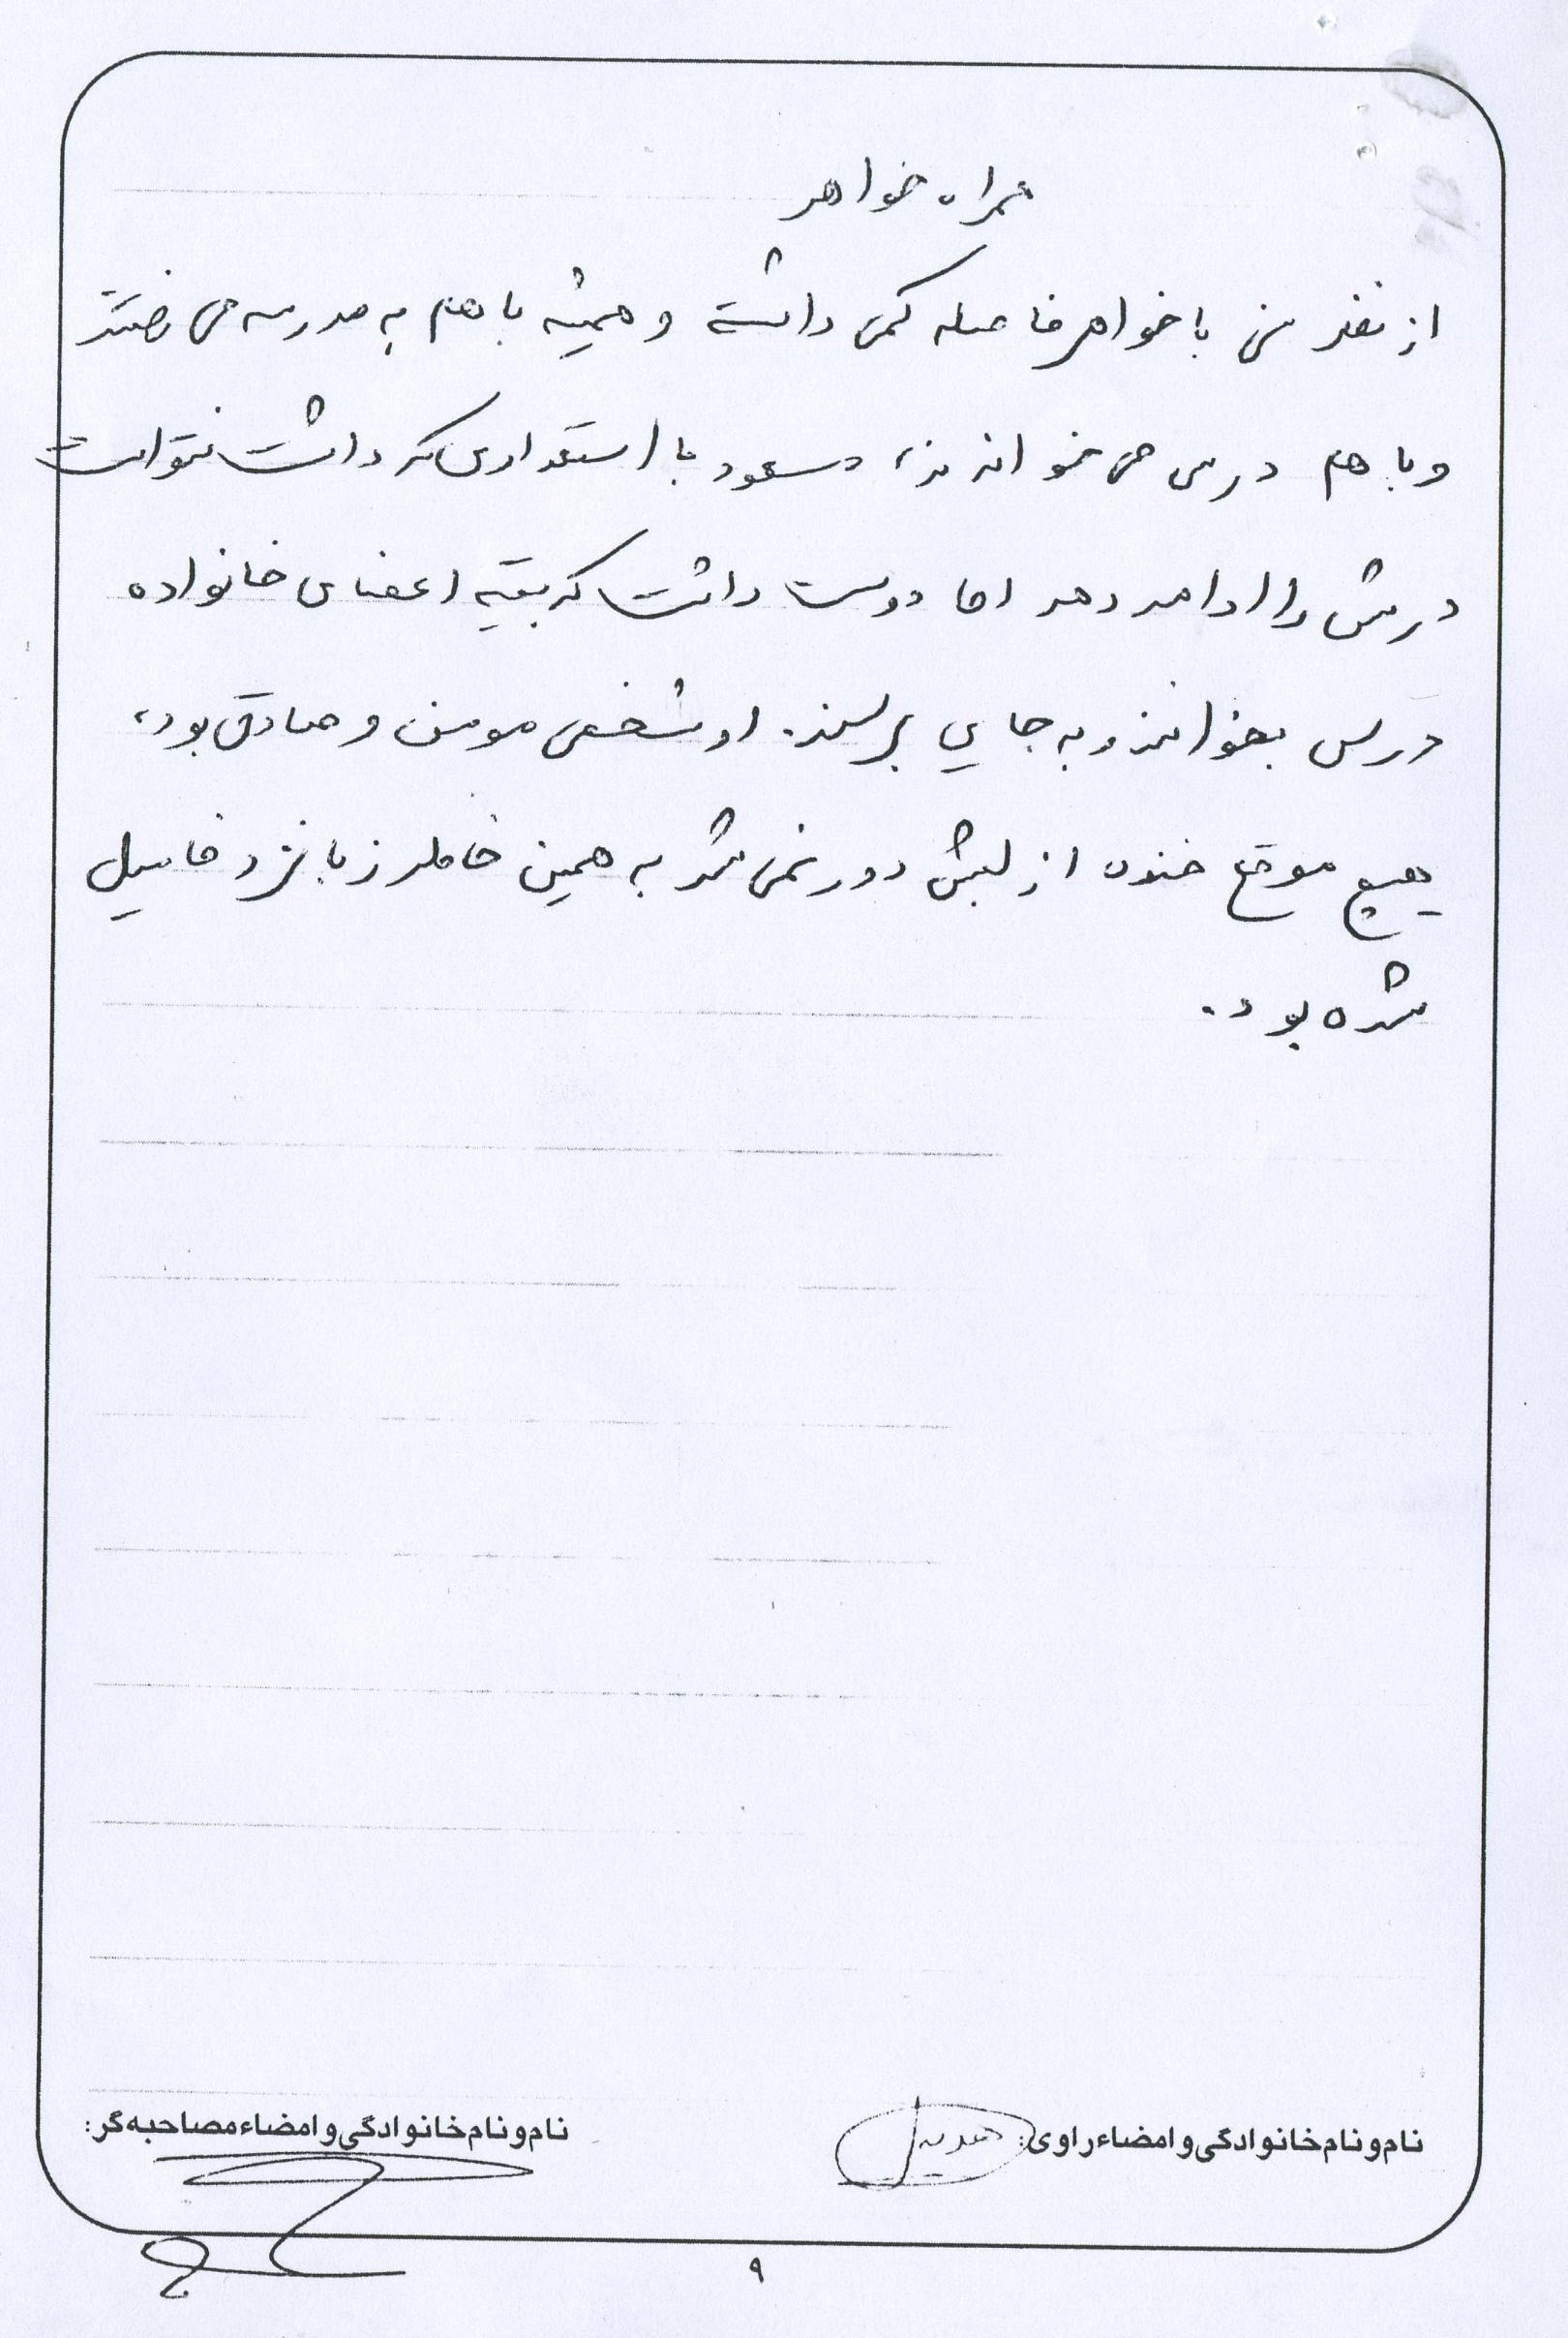 همراه خواهر
از نظر سنی با خواهر فاصله کمی داشت و همیشه با هم به مدرسه می رفتند
و با هم درس می خواندند، مسعود با استعدادی که داشت نتوانست
درسش را ادامه دهد اما دوست داشت که بقیه اعضای خانواده
درس بخوانند و به جایی برسند. او شخصی مومن و صادق بود،
هیچ موقع خنده از لبش دور نمی شد به همین خاطر زبانزد فامیل
شده بود.
نام و نام خانوادگی و امضاء راوی:
نام و نام خانوادگی و امضاء مصاحبه گر:
۹